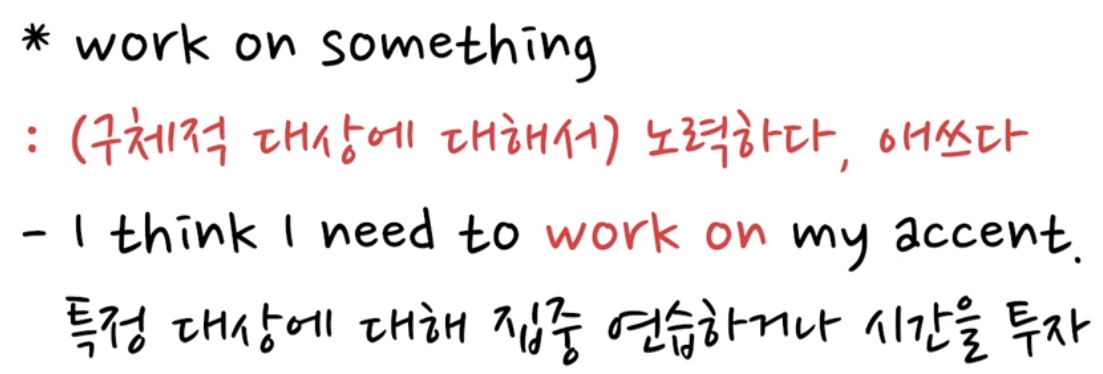 * work on something
: (구체적 대상에 대해서) 노력하다, 애쓰다
- I think I need to work on my accent.
특정 대상에 대해 집중 연습하거나 시간을 투자